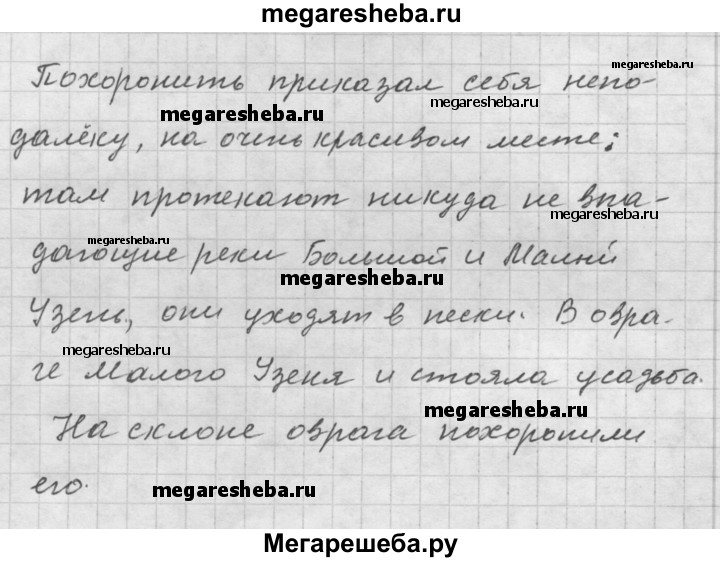 megaresheba.ru
megaresheba.ru
Похоронить приказал себя непо-
megaresheba.ru
megaresheba.ru
далёку, на очень красивом месте;
там протекают никуда не впа-
megaresheba.ru
megaresheba.ru
дающие реки Большой и Малый
megaresheba.ru
Узень, они уходят в пески. В овра-
megaresheba.ru
ге Малого Узеня и стояла усадьба.
megaresheba.ru
На склоне оврага похоронили
его.
megaresheba.ru
Мегарешеба.ру